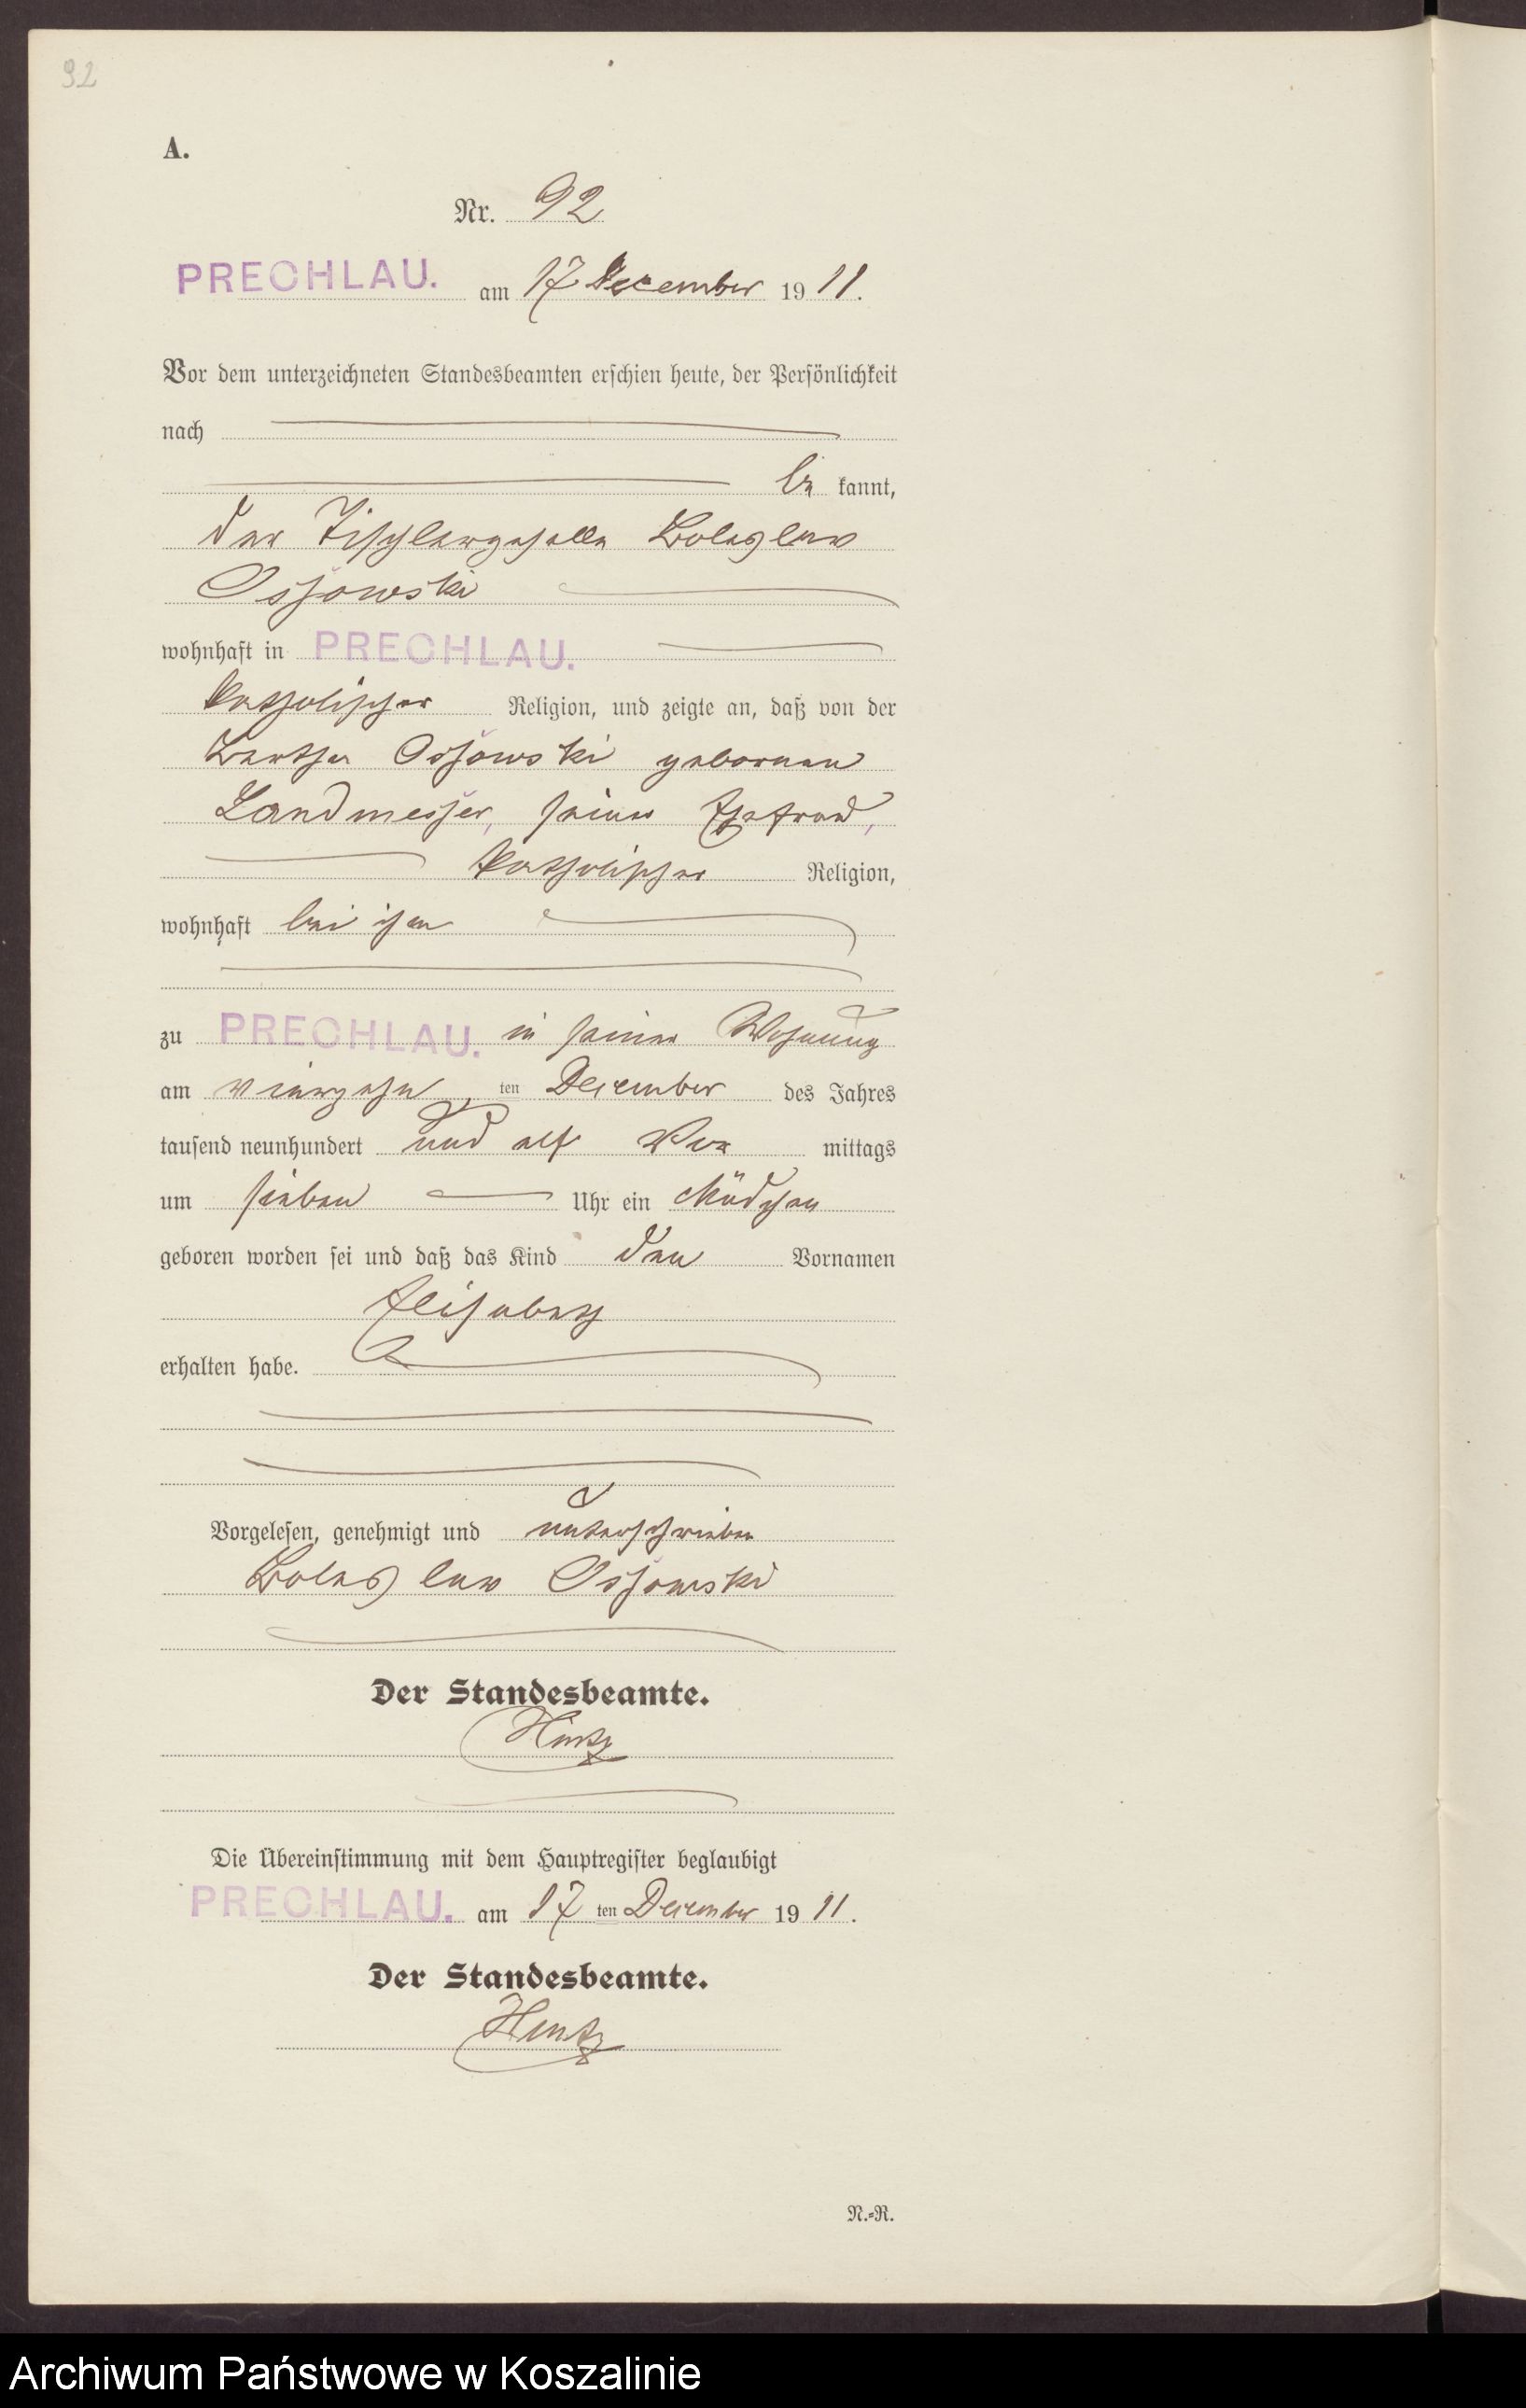 92
A.
Nr. 92
PRECHLAU. am 17 December 1911.
Vor dem unterzeichneten Standesbeamten erschien heute, der Persönlichkeit
nach
be kannt,
der Tischlergeselle Boleslaw
Ossowski
wohnhaft in PRECHLAU.
katholischer Religion, und zeigte an, daß von der
Bertha Ossowski geborenen
Landmesser, seiner Ehefrau,
katholischer Religion,
wohnhaft bei ihm
zu PRECHLAU. in seiner Wohnung
am vierzehn ten December des Jahres
tausend neunhundert und elf Vor mittags
um sieben Uhr ein Mädchen
geboren worden sei und daß das Kind den Vornamen
Elisabeth
erhalten habe.
Vorgelesen, genehmigt und unterschrieben
Boleslaw Ossowski
Der Standesbeamte.
Hintz
Die Übereinstimmung mit dem Hauptregister beglaubigt
PRECHLAU. am 17 ten December 1911.
Der Standesbeamte.
Hintz
N.-R.
Archiwum Państwowe w Koszalinie